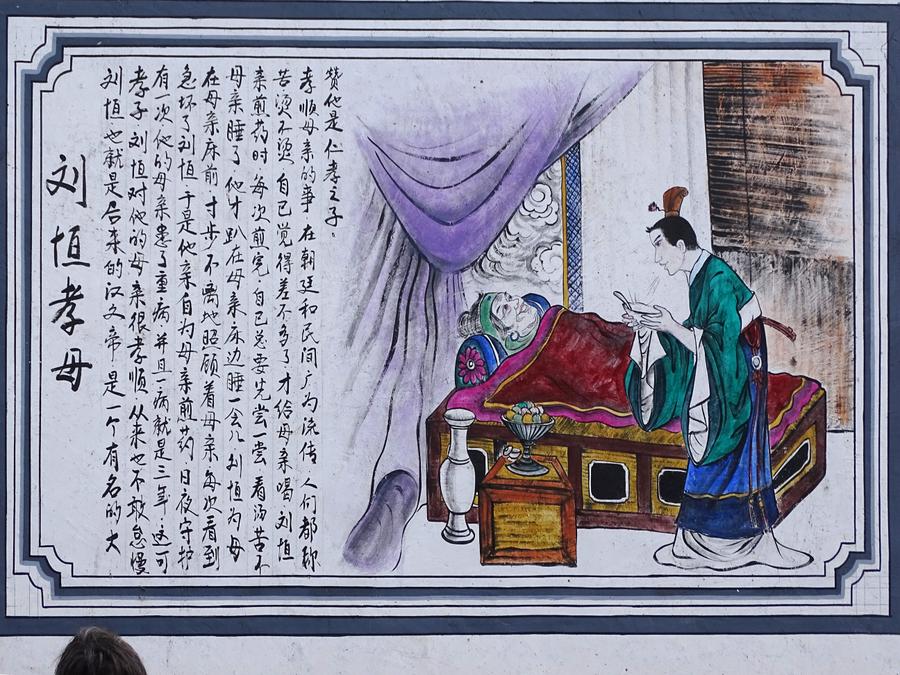 刘恒孝母
刘恒也就是后来的汉文帝 是一个有名的大
孝子 刘恒对他的母亲很孝顺 从来也不敢怠慢
有一次他的母亲患了重病 并且一病就是三年 这可
急坏了刘恒 于是他亲自为母亲煎药 日夜守护
在母亲床前 寸步不离地照顾着母亲 每次看到
母亲睡了 他才趴在母亲床边睡一会儿 刘恒为母
亲煎药时 每次煎完 自己总要先尝一尝 看汤苦不
苦 烫不烫 自己觉得差不多了 才给母亲喝 刘恒
孝顺母亲的事 在朝廷和民间广为流传 人们都称
赞他是仁孝之子。